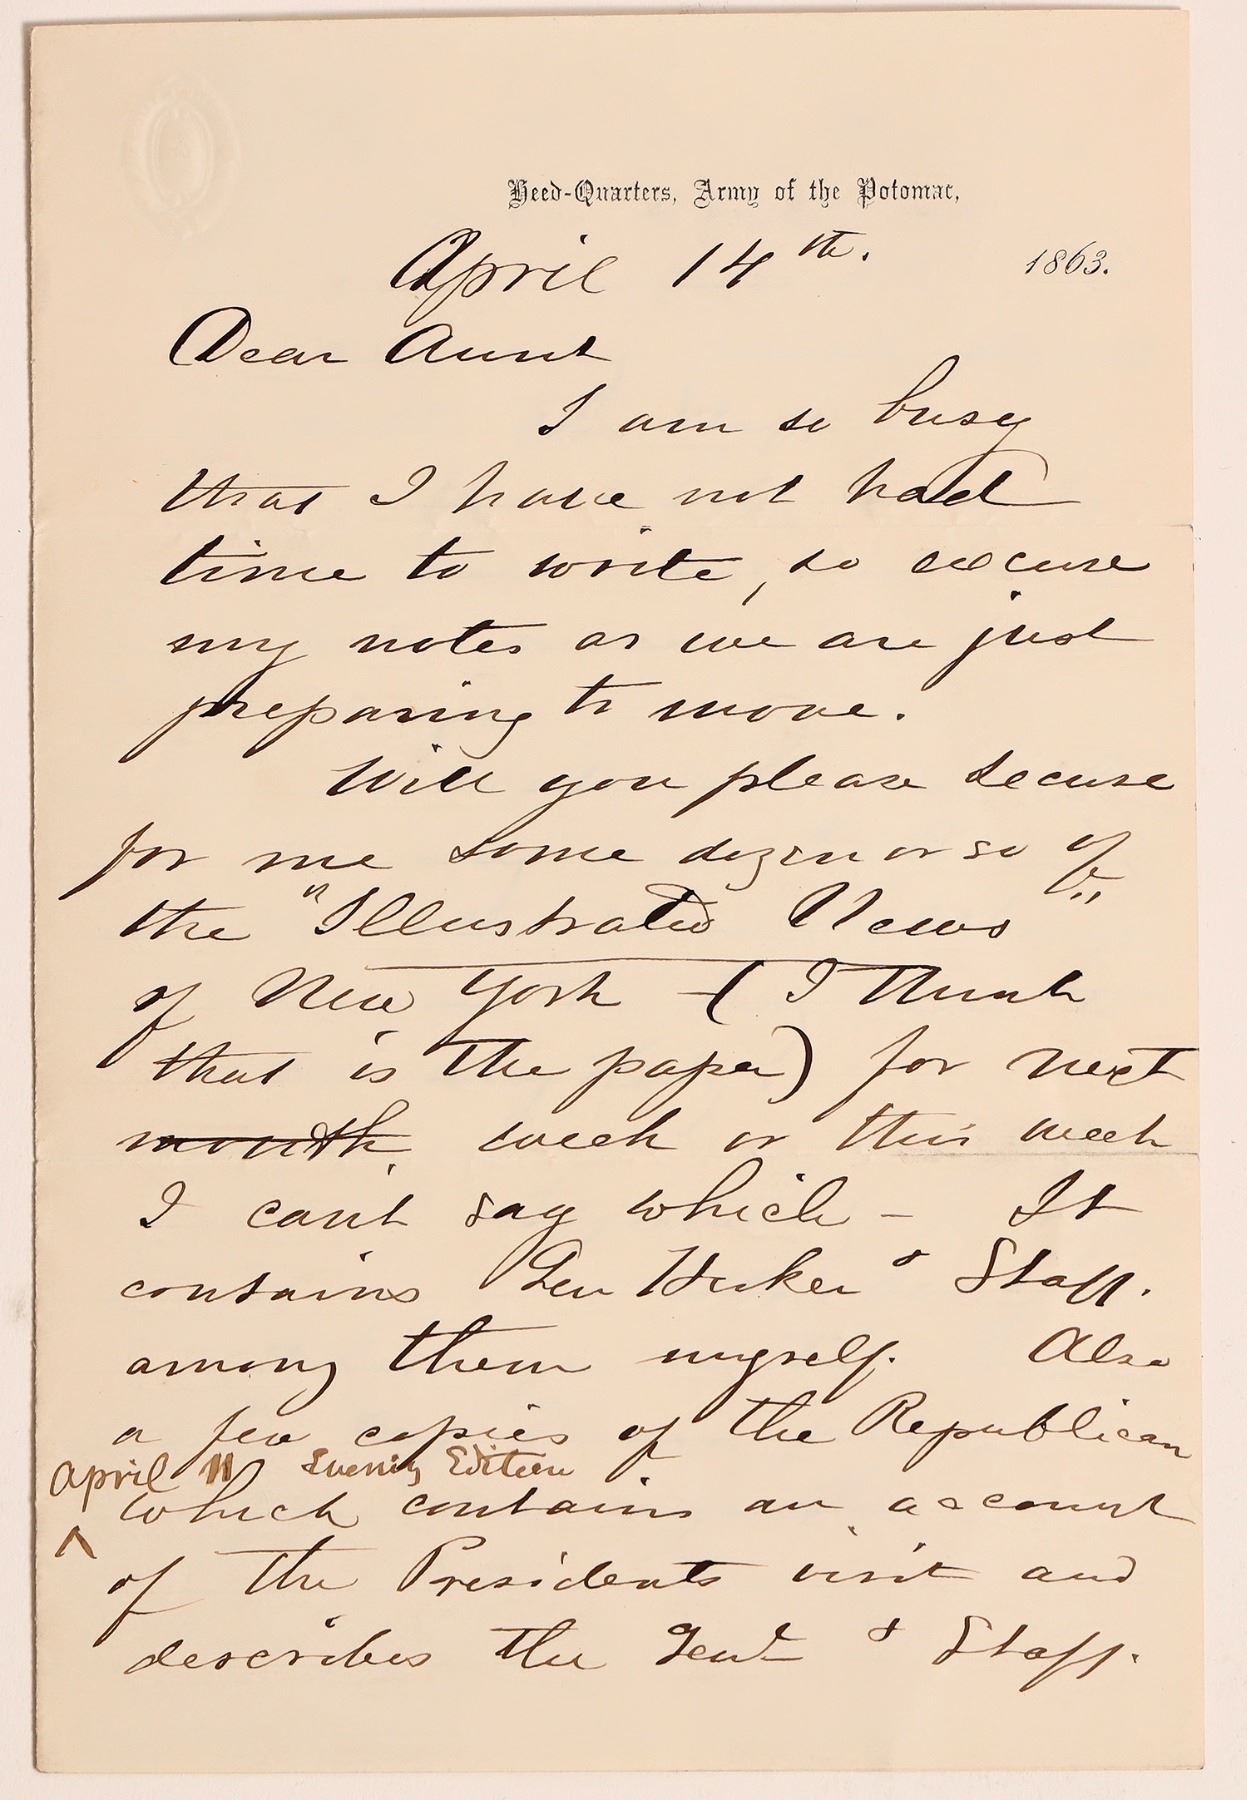 Heed-Quarters, Army of the Potomac,
April 14th. 1863.
Dear Aunt
I am so busy
that I have not had
time to write, so excuse
my notes as we are just
preparing to move.
Will you please secure
for me some dozen or so of
the "Illustrated News"
of New York - (I think
that is the paper) for next
month week or this week
I can't say which - It
contains Gen Hooker & Staff.
among them myself. Also
a few copies of the Republican
April 11 Evening Edition
^ which contains an account
of the Presidents visit and
describes the Genl & Staff.